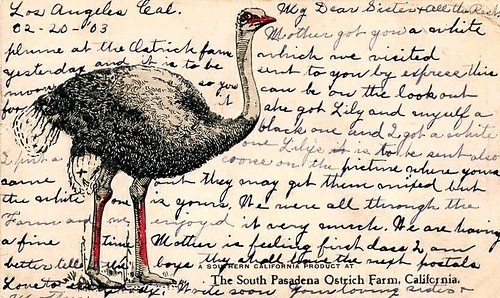 Los Angeles Cal. My Dear Sister & all the Rest
02-20-03 Mother got you a white
plume at the Ostrich farm which we visited
yesterday and it is to be sent to you by express this
so you can be on the look out
for it she got Lily and myself a
black one and I got a white
one Lilys it is to be sent also
on the picture where yours
came but they may get them mixed but
the white one is yours. We were all through the
Farm and we enjoyed it very much. We are having
a fine time Mother is feeling first class I am
better tell the boys they shall have the next postals
A SOUTHERN CALIFORNIA PRODUCT AT
The South Pasadena Ostrich Farm, California.
Love to Write soon your loving sister &